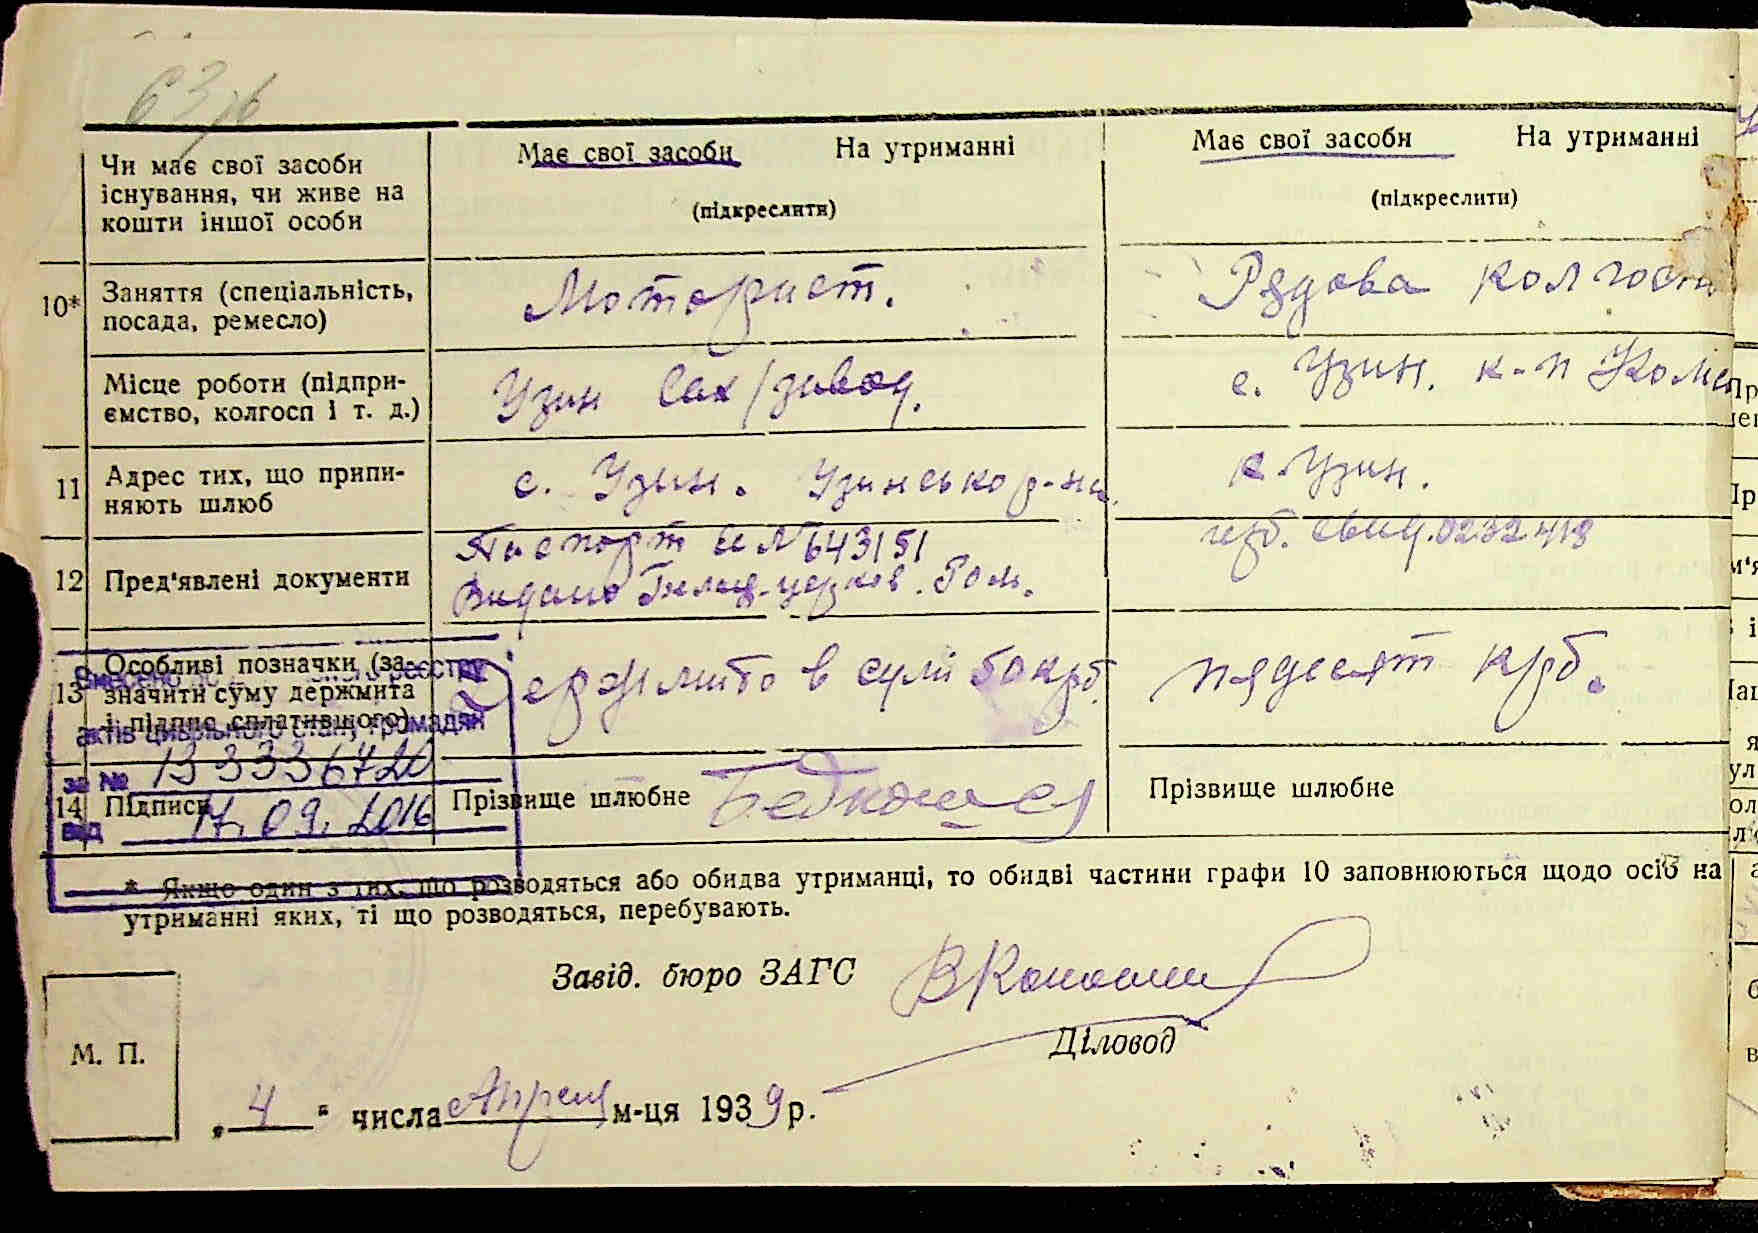 63/6
Чи має свої засоби існування, чи живе на кошти іншої особи
Має свої засоби На утриманні
(підкреслити)
Має свої засоби На утриманні
(підкреслити)
10*
Заняття (спеціальність, посада, ремесло)
Моторист.
Рядова колгосп
Місце роботи (підпри-
ємство, колгосп і т. д.)
Узин Сах/завод.
с. Узин. к-п
11
Адрес тих, що припи-
няють шлюб
с. Узин. Узинсько р-на.
с. Узин.
12
Пред'явлені документи
Паспорт № 643151
Видано Білоц-церков.
свид. 0232418
13
Особливі позначки (за-
значити суму держмита
і підпис сплатившого)
Держмито в сумі 50 крб.
пядесят крб.
реєстру
актів цивільного стану громадян
за № 13336720
від 17.09.2016
14
Підписи
Прізвище шлюбне
Прізвище шлюбне
* Якщо один з тих, що розводяться або обидва утриманці, то обидві частини графи 10 заповнюються щодо осіб на
утриманні яких, ті що розводяться, перебувають.
Завід. бюро ЗАГС
Діловод
М. П.
„4" числа Апреля м-ця 1939 р.